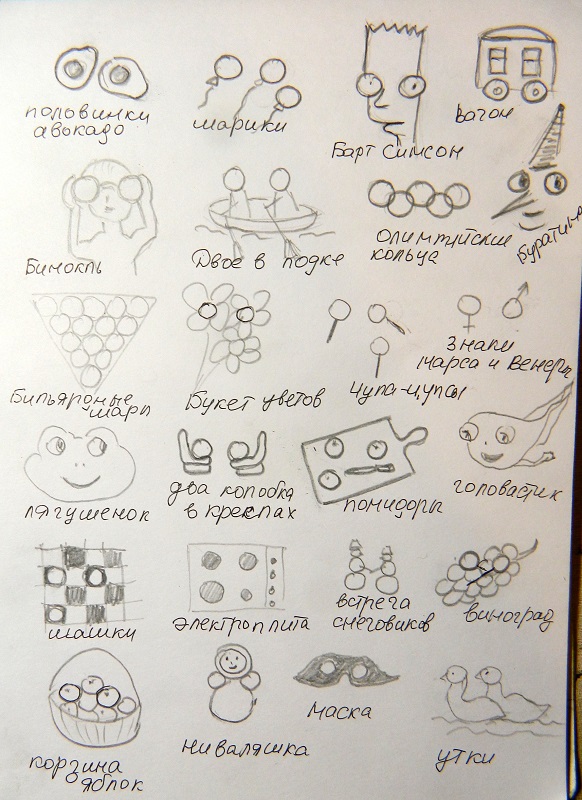 половинки
авокадо
шарики
Барт Симсон
вагон
Бинокль
Двое в лодке
Олимпийские
кольца
Буратино
Бильярдные
шары
Букет цветов
Чупа-чупсы
Знаки
Марса и Венеры
лягушенок
два колобка
в креслах
помидоры
головастик
шашки
электроплита
встреча
снеговиков
виноград
корзина
яблок
ниваляшка
маска
утки